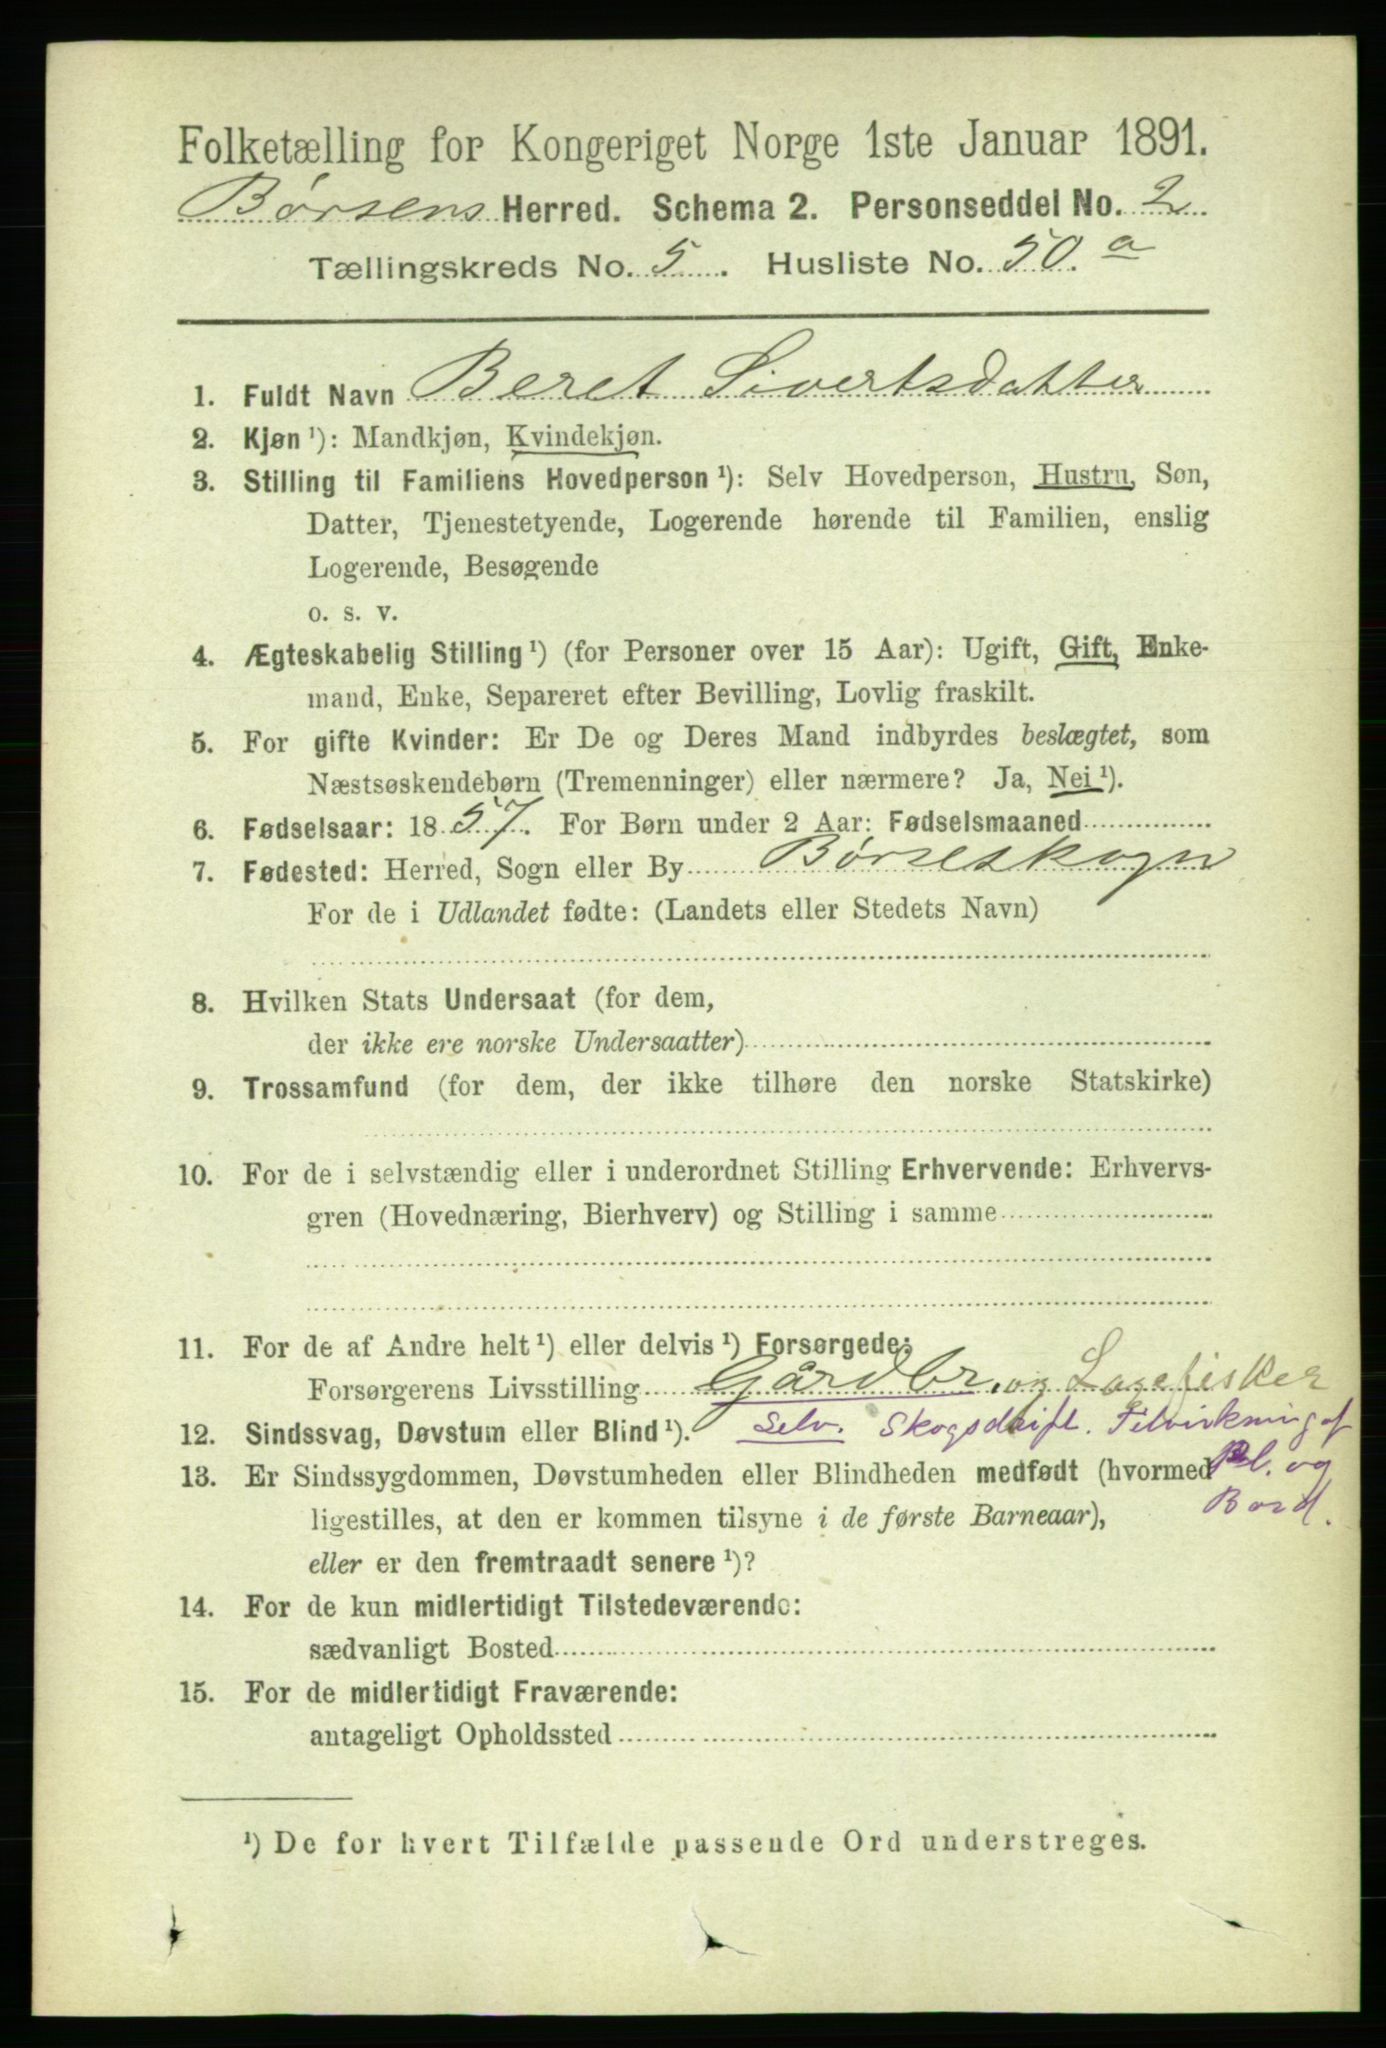 Folketælling for Kongeriget Norge 1ste Januar 1891.
Børsens Herred. Schema 2. Personseddel No. 2
Tællingskreds No. 5. Husliste No. 50. a
1. Fuldt Navn Beret Sivertsdatter
2. Kjøn ¹): Mandkjøn, Kvindekjøn.
3. Stilling til Familiens Hovedperson ¹): Selv Hovedperson, Hustru, Søn,
Datter, Tjenestetyende, Logerende hørende til Familien, enslig
Logerende, Besøgende
o. s. v.
4. Ægteskabelig Stilling ¹) (for Personer over 15 Aar): Ugift, Gift, Enke-
mand, Enke, Separeret efter Bevilling, Lovlig fraskilt.
5. For gifte Kvinder: Er De og Deres Mand indbyrdes beslægtet, som
Næstsøskendebørn (Tremenninger) eller nærmere? Ja, Nei ¹).
6. Fødselsaar: 1857. For Børn under 2 Aar: Fødselsmaaned
7. Fødested: Herred, Sogn eller By Børseskogn
For de i Udlandet fødte: (Landets eller Stedets Navn)
8. Hvilken Stats Undersaat (for dem,
der ikke ere norske Undersaatter)
9. Trossamfund (for dem, der ikke tilhøre den norske Statskirke)
10. For de i selvstændig eller i underordnet Stilling Erhvervende: Erhvervs-
gren (Hovednæring, Bierhverv) og Stilling i samme
11. For de af Andre helt ¹) eller delvis ¹) Forsørgede:
Forsørgerens Livsstilling Gårdbr. og Laxefisker
12. Sindssvag, Døvstum eller Blind ¹). Selv. Skogsdrift. Tilvirkning af
13. Er Sindssygdommen, Døvstumheden eller Blindheden medfødt (hvormed Pl. og
ligestilles, at den er kommen tilsyne i de første Barneaar), Bord.
eller er den fremtraadt senere ¹)?
14. For de kun midlertidigt Tilstedeværende:
sædvanligt Bosted
15. For de midlertidigt Fraværende:
antageligt Opholdssted
¹) De for hvert Tilfælde passende Ord understreges.